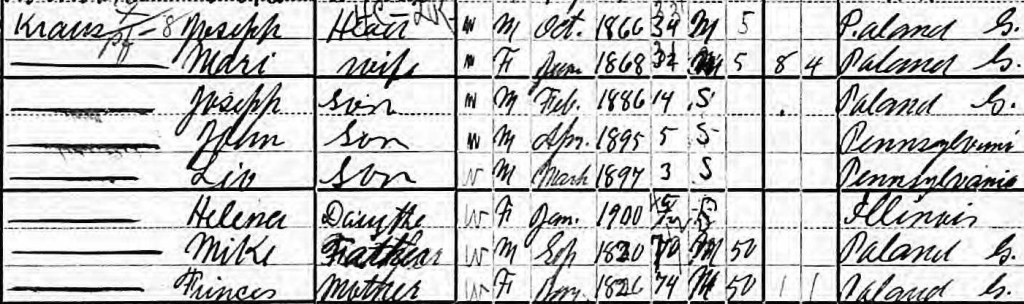 Kraus Joseph W M Oct. 1866 34 M 5 Paland G.
Mari wife W F 1868 32 M 5 8 4 Paland G.
Joseph Son W M Feb. 1886 14 S Paland G.
John Son W M Apr. 1895 5 S Pennsylvani
Liv Son W M Marh 1897 3 S Pennsylvania
Helena Daughte W F Jan. 1900 S Illinois
Mike Fathear W M Sep 1820 M 50 Paland G.
Frinces Mother W F 1826 74 M 50 1 1 Paland G.